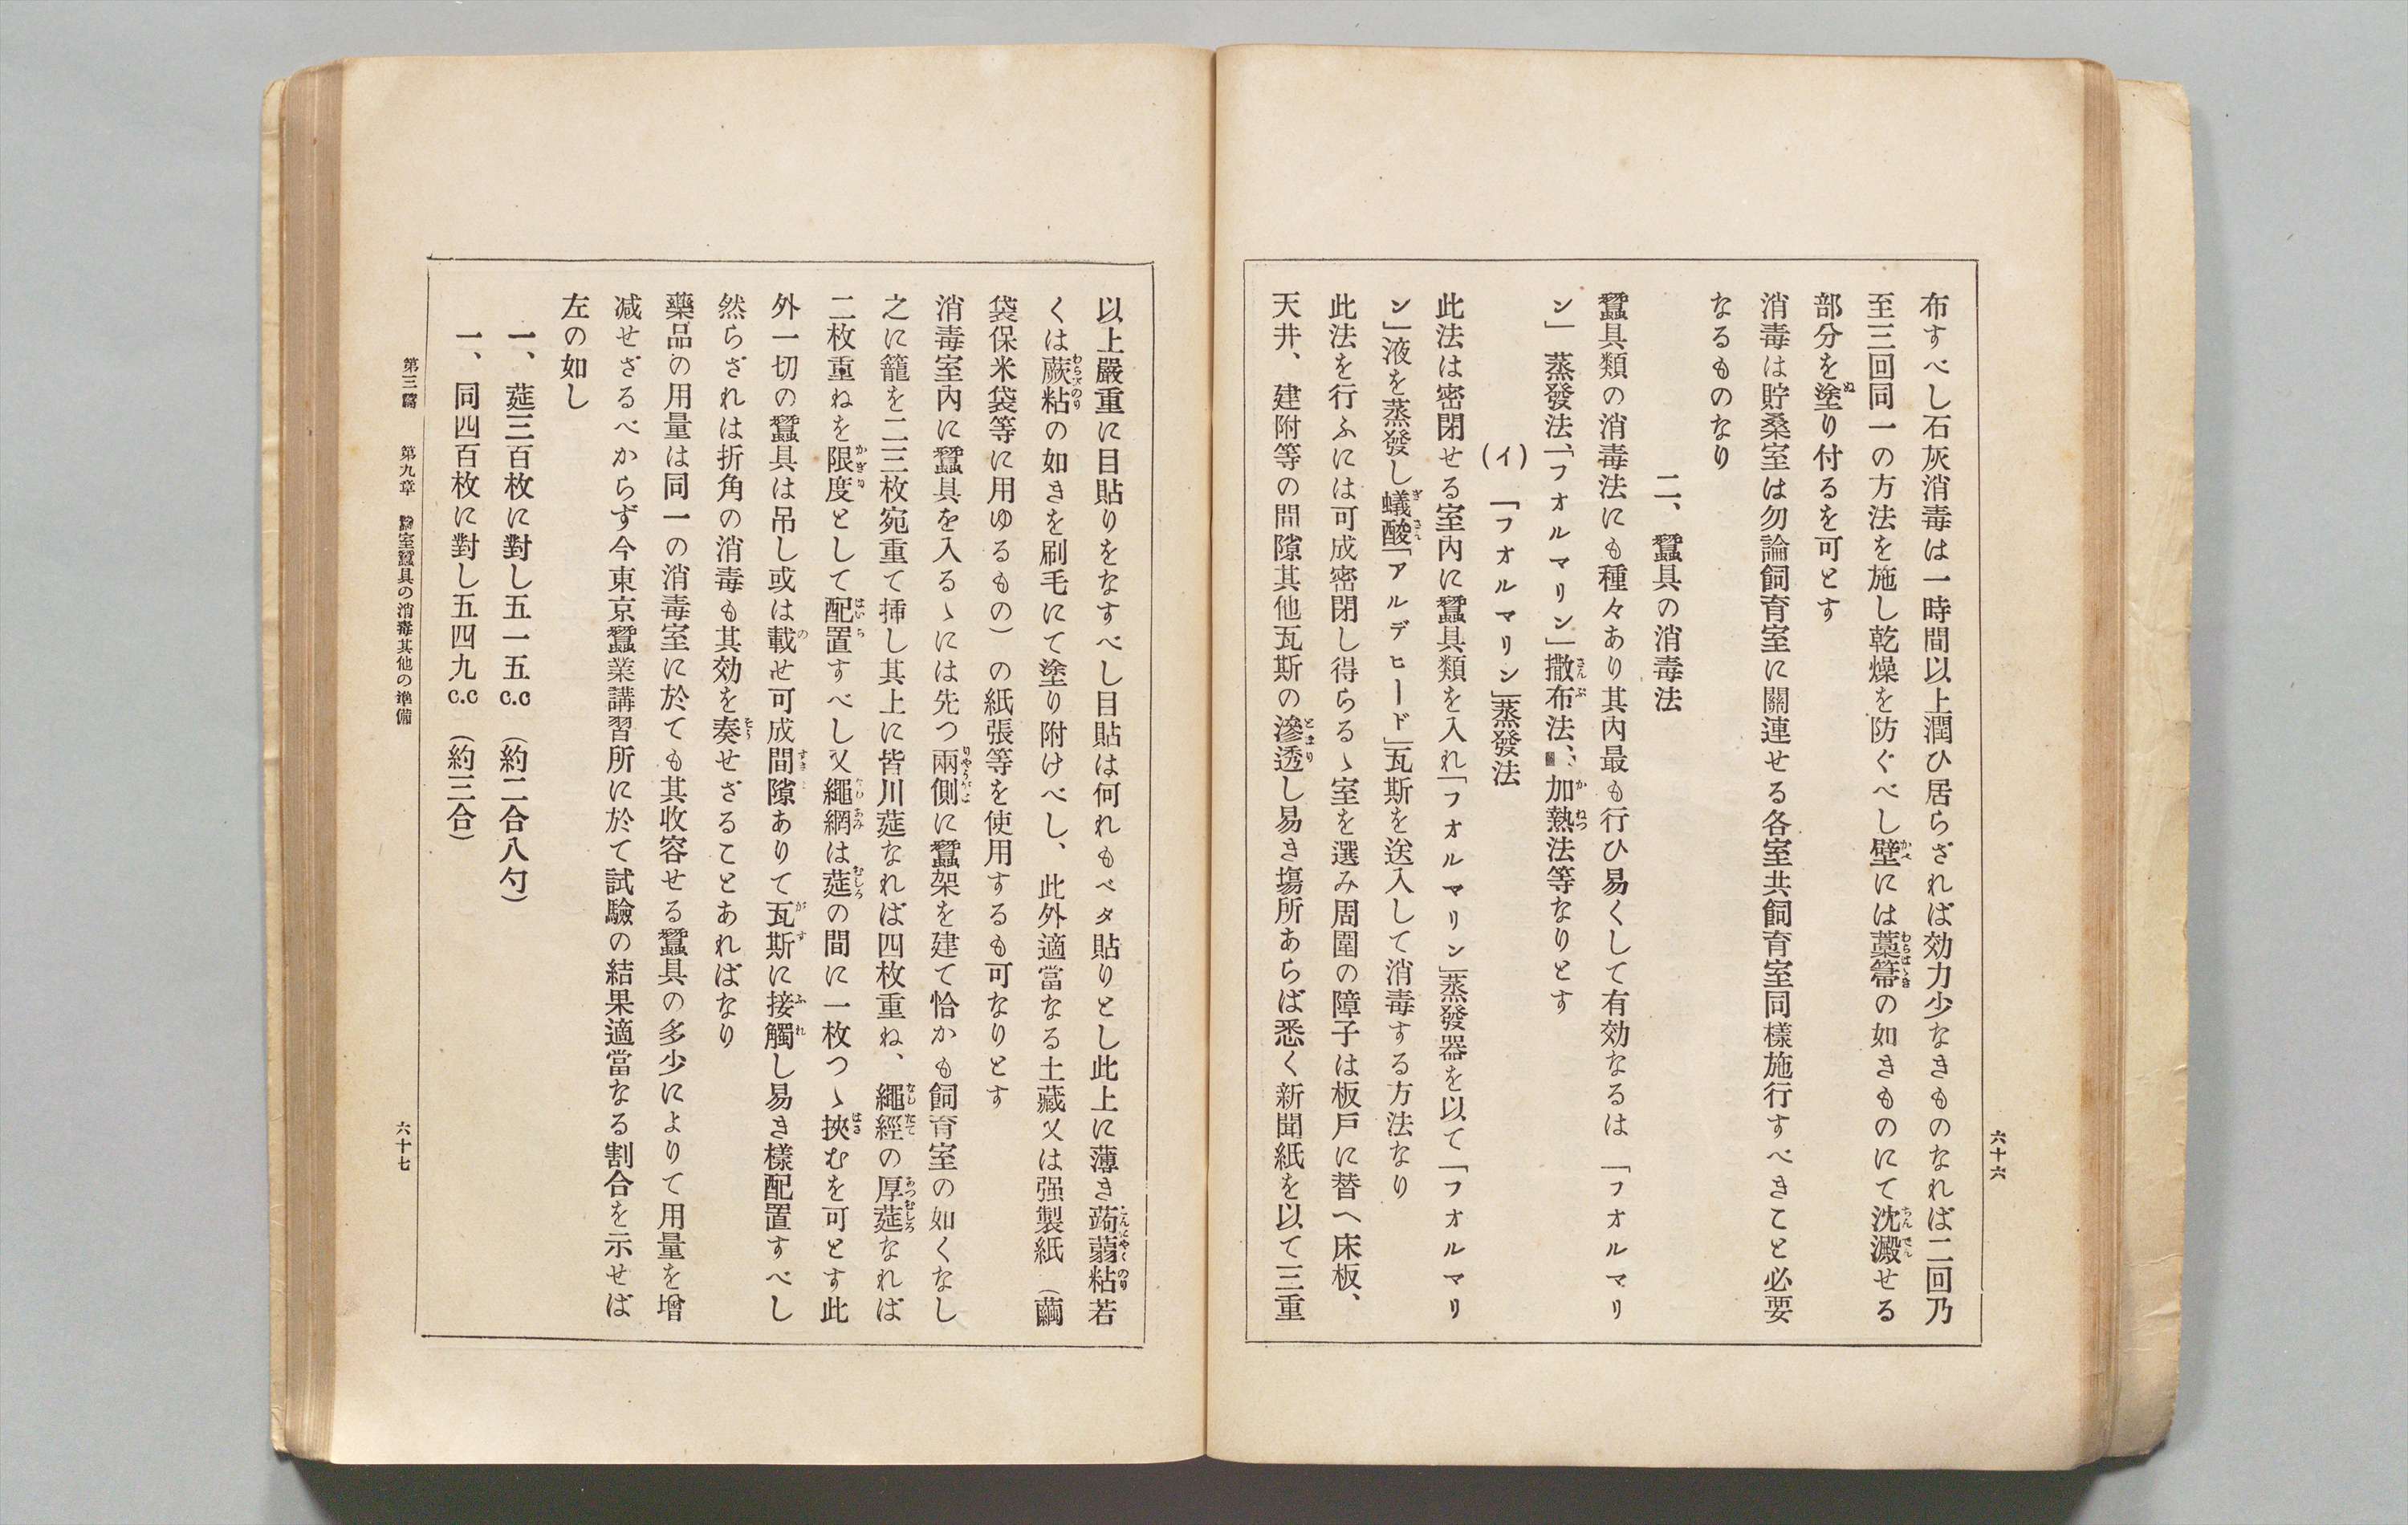 布すべし石灰消毒は一時間以上潤ひ居らざれば効力少なきものなれば二回乃
至三回同一の方法を施し乾燥を防ぐべし壁には藁箒の如きものにて沈澱せる
部分を塗り付るを可とす
消毒は貯桑室は勿論飼育室に關連せる各室共飼育室同樣施行すべきこと必要
なるものなり
二、蠶具の消毒法
蠶具類の消毒法にも種々あり其内最も行ひ易くして有効なるは「フオルマリ
ン」蒸發法、「フオルマリン」撒布法、、加熱法等なりとす
(イ)「フオルマリン」蒸發法
此法は密閉せる室内に蠶具類を入れ「フオルマリン」蒸發器を以て「フオルマリ
ン」液を蒸發し蟻酸「アルデヒード」瓦斯を送入して消毒する方法なり
此法を行ふには可成密閉し得らるゝ室を選み周圍の障子は板戸に替へ床板、
天井、建附等の間隙其他瓦斯の滲透し易き塲所あらば悉く新聞紙を以て三重
六十六
以上嚴重に目貼りをなすべし目貼は何れもベタ貼りとし此上に薄き蒟蒻粘若
くは蕨粘の如きを刷毛にて塗り附けべし、此外適當なる土藏又は强製紙（繭
袋保米袋等に用ゆるもの）の紙張等を使用するも可なりとす
消毒室内に蠶具を入るゝには先つ兩側に蠶架を建て恰かも飼育室の如くなし
之に籠を二三枚宛重て揷し其上に皆川莚なれば四枚重ね、繩經の厚莚なれば
二枚重ねを限度として配置すべし又繩網は莚の間に一枚つゝ挾むを可とす此
外一切の蠶具は吊し或は載せ可成間隙ありて瓦斯に接觸し易き樣配置すべし
然らざれは折角の消毒も其効を奏せざることあればなり
藥品の用量は同一の消毒室に於ても其收容せる蠶具の多少によりて用量を增
减せざるべからず今東京蠶業講習所に於て試驗の結果適當なる割合を示せば
左の如し
一、莚三百枚に對し五一五c.c（約二合八勺）
一、同四百枚に對し五四九c.c（約三合）
第三篇 第九章 蠶室蠶具の消毒其他の準備
六十七